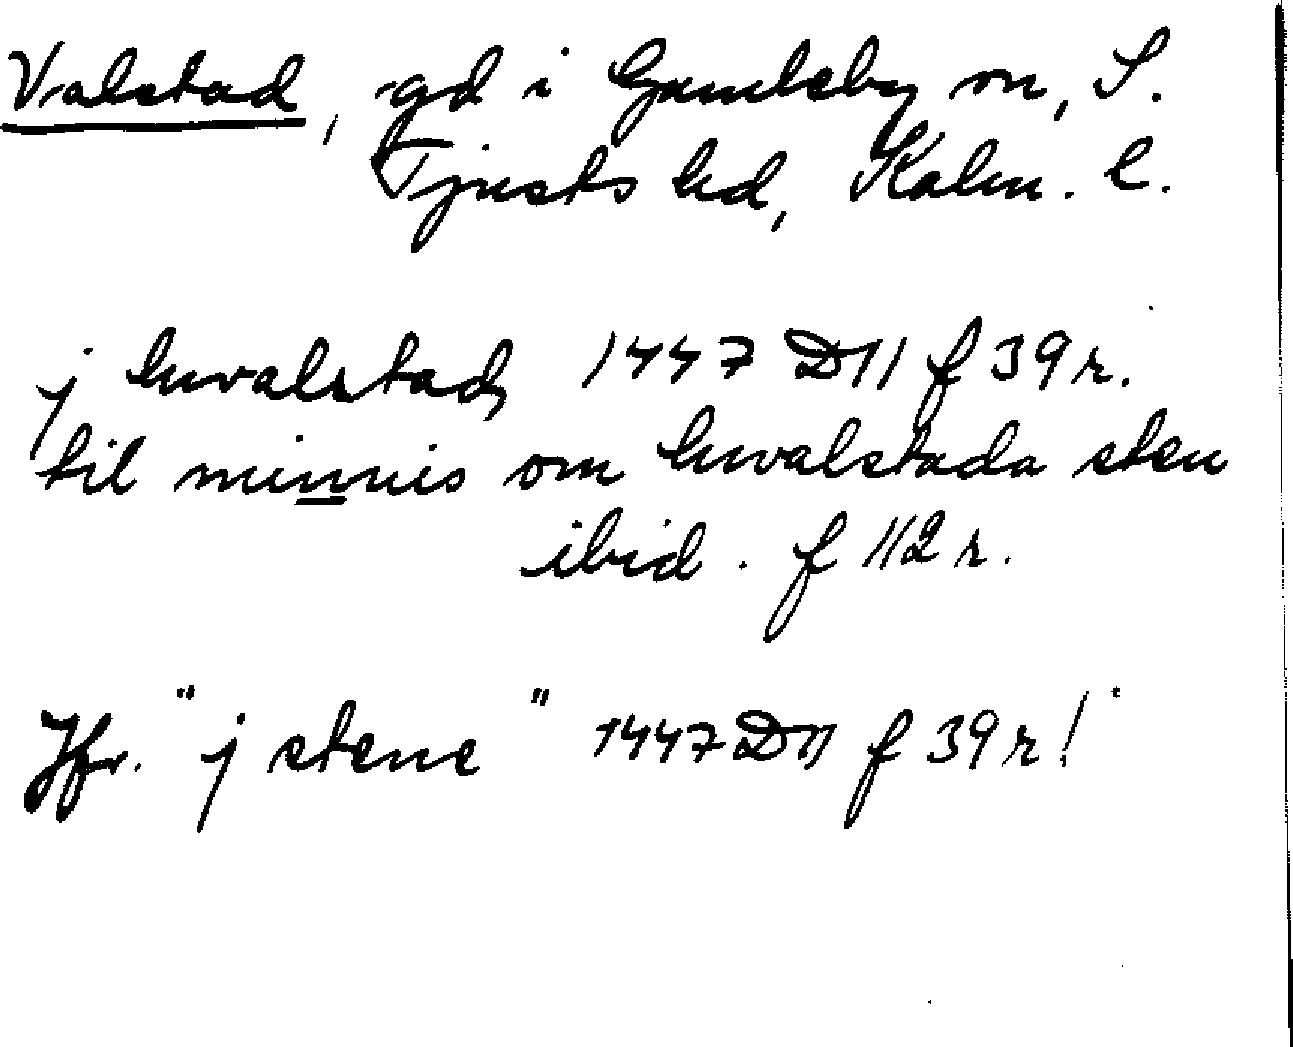 Valstad, gd i Gamleby sn, S.
Tjusts hd, Kalm. l.
j hwalstad 1447 D11 f 39 r.
til minnis om hwalstada sten
ibid. f 112 r.
Jfr. "j stene" 1447 D11 f 39 r!